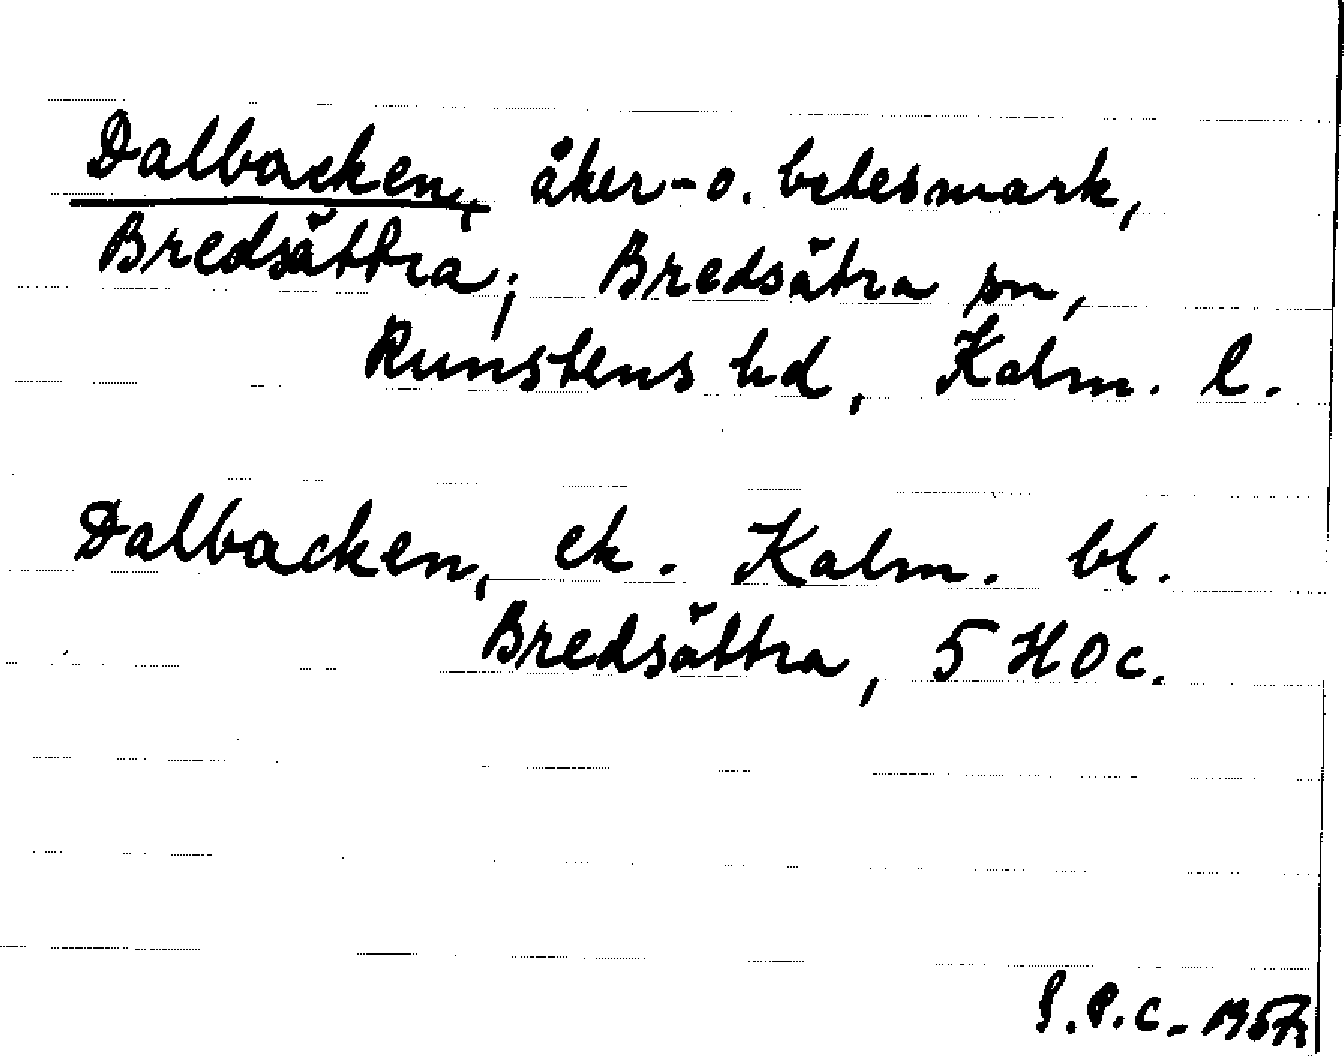 Dalbacken, åker- o. betesmark,
Bredsättra; Bredsätra sn,
Runstens hd, Kalm. l.
Dalbacken, ek. Kalm. bl.
Bredsättra, 5 H 0 c.